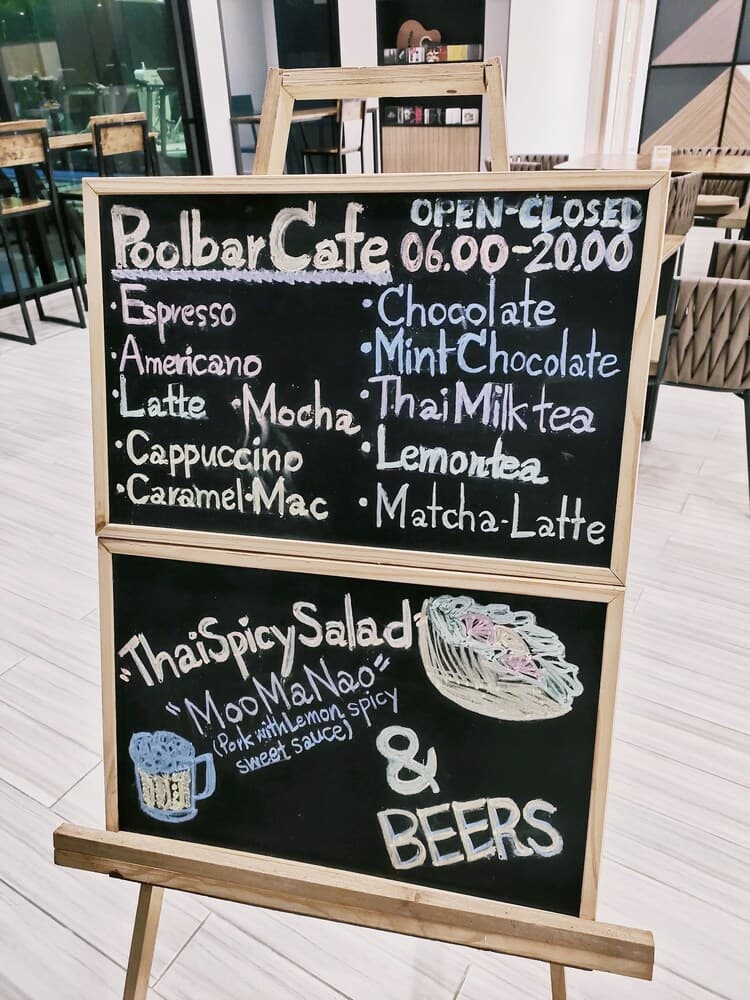 Poolbar Cafe
OPEN-CLOSED
06.00-20.00
·Espresso
·Americano
·Latte ·Mocha
·Cappuccino
·Caramel·Mac
·Chocolate
·Mint Chocolate
·Thai Milk tea
·Lemontea
·Matcha-Latte
"Thai Spicy Salad"
"Moo Ma Nao"
(Pork with Lemon spicy
sweet sauce)
&
BEERS